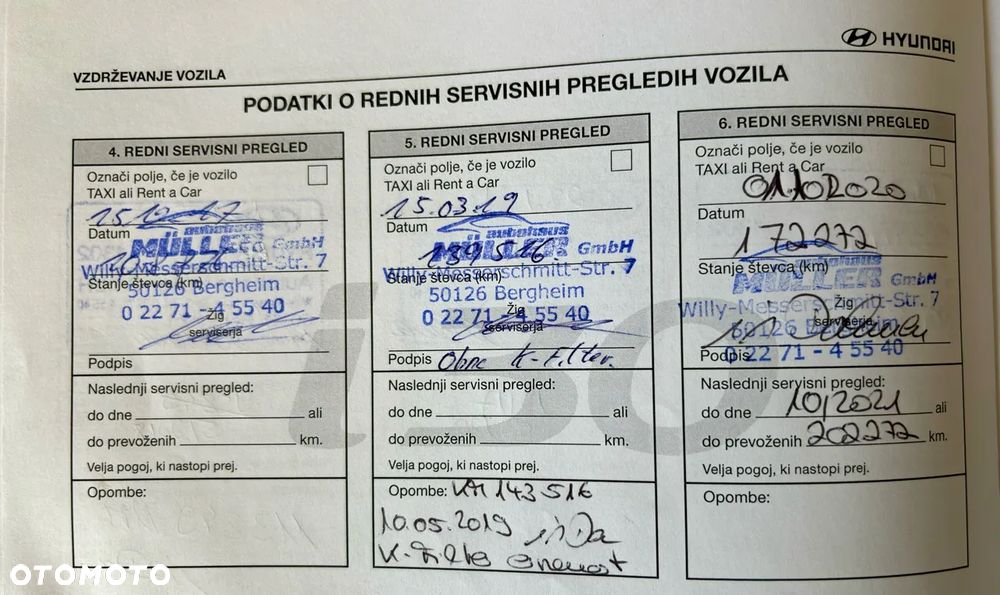 HYUNDAI
VZDRŽEVANJE VOZILA
PODATKI O REDNIH SERVISNIH PREGLEDIH VOZILA
4. REDNI SERVISNI PREGLED
Označi polje, če je vozilo
TAXI ali Rent a Car
15.12.17
Datum
autohaus
MÜLLER GmbH
Willy-Messerschmitt-Str. 7
Stanje števca (km)
50126 Bergheim
0 22 71 - 4 55 40
Žig
serviserja
Podpis
Naslednji servisni pregled:
do dne ali
do prevoženih km.
Velja pogoj, ki nastopi prej.
Opombe:
5. REDNI SERVISNI PREGLED
Označi polje, če je vozilo
TAXI ali Rent a Car
15.03.19
Datum
autohaus
MÜLLER GmbH
139516
Willy-Messerschmitt-Str. 7
Stanje števca (km)
50126 Bergheim
0 22 71 - 4 55 40
Žig
serviserja
Podpis Ohne K-Filter.
Naslednji servisni pregled:
do dne ali
do prevoženih km.
Velja pogoj, ki nastopi prej.
Opombe: KM 143516
10.05.2019
K-Filter erneuert
6. REDNI SERVISNI PREGLED
Označi polje, če je vozilo
TAXI ali Rent a Car
01.10.2020
Datum
172272
Stanje števca (km)
autohaus
MÜLLER GmbH
Willy-Messerschmitt-Str. 7
Žig
50126 Bergheim
serviserja
Podpis
0 22 71 - 4 55 40
Naslednji servisni pregled:
do dne 10/2021 ali
do prevoženih 202272 km.
Velja pogoj, ki nastopi prej.
Opombe:
150
OTOMOTO